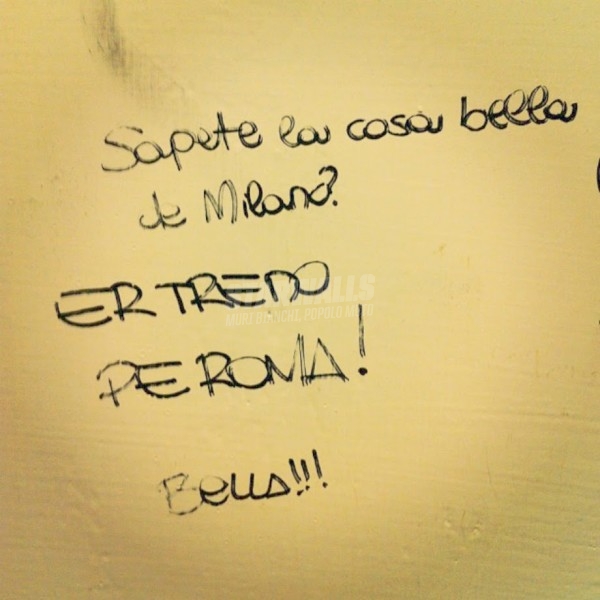 Sapete la cosa bella
de Milano?
ER TRENO
PE ROMA!
Bella!!!
MURI BIANCHI, POPOLO MUTO